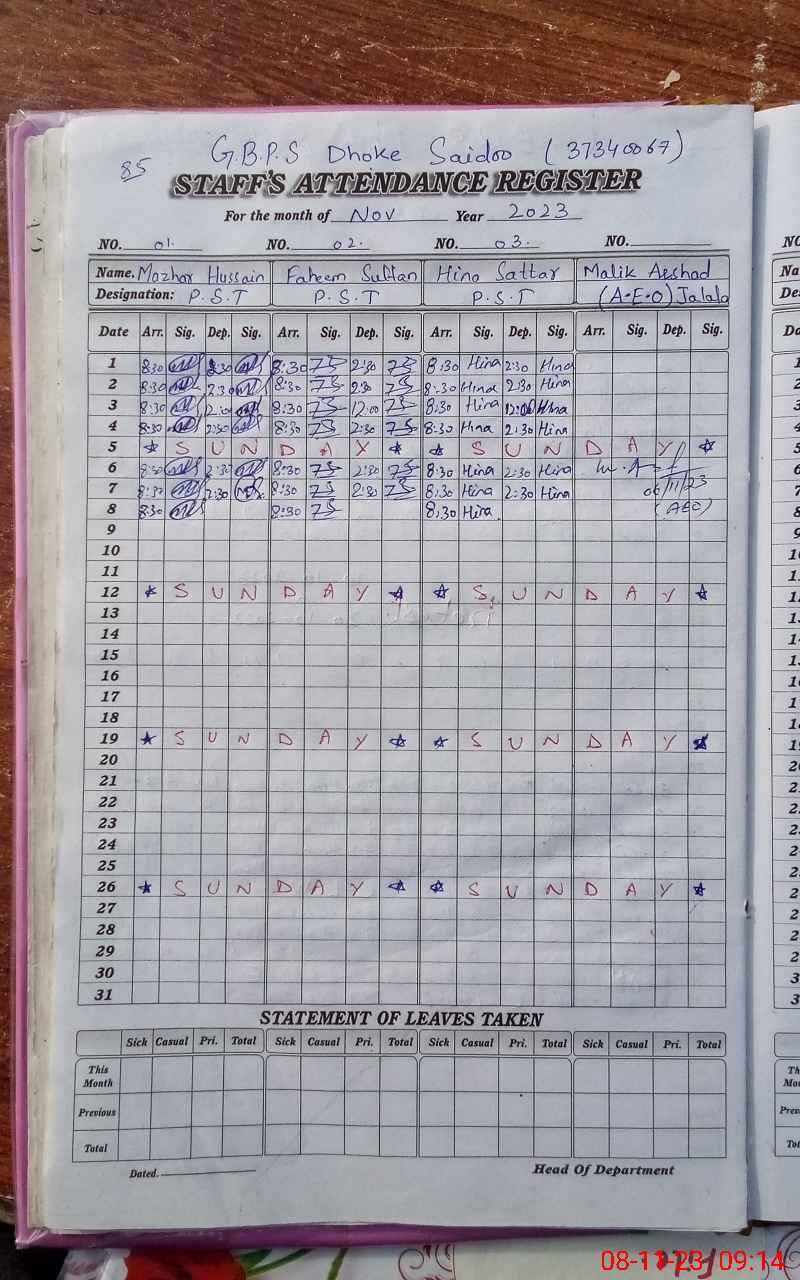 85 G.B.P.S Dhoke Saidoo (37340067)
STAFF'S ATTENDANCE REGISTER
For the month of Nov Year 2023
NO. 01. NO. 02. NO. 03. NO.
Name. Mazhar Hussain Faheem Sultan Hina Sattar Malik Arshad
Designation: P.S.T P.S.T P.S.T (A.E.O) Jalala
Date Arr. Sig. Dep. Sig. Arr. Sig. Dep. Sig. Arr. Sig. Dep. Sig. Arr. Sig. Dep. Sig.
1 8:30 2:30 8:30 2:30 8:30 Hina 2:30 Hina
2 8:30 2:30 8:30 2:30 8:30 Hina 2:30 Hina
3 8:30 12:00 8:30 12:00 8:30 Hina 12:00 Hina
4 8:30 2:30 8:30 2:30 8:30 Hina 2:30 Hina
5 * S U N D A Y * * S U N D A Y *
6 8:30 2:30 8:30 2:30 8:30 Hina 2:30 Hina
7 8:30 2:30 8:30 2:30 8:30 Hina 2:30 Hina 06/11/23
8 8:30 8:30 8:30 Hina (AEO)
9
10
11
12 * S U N D A Y * * S U N D A Y *
13
14
15
16
17
18
19 * S U N D A Y * * S U N D A Y *
20
21
22
23
24
25
26 * S U N D A Y * * S U N D A Y *
27
28
29
30
31
STATEMENT OF LEAVES TAKEN
Sick Casual Pri. Total Sick Casual Pri. Total Sick Casual Pri. Total Sick Casual Pri. Total
This Month
Previous
Total
Dated. Head Of Department
08-11-23 09:14